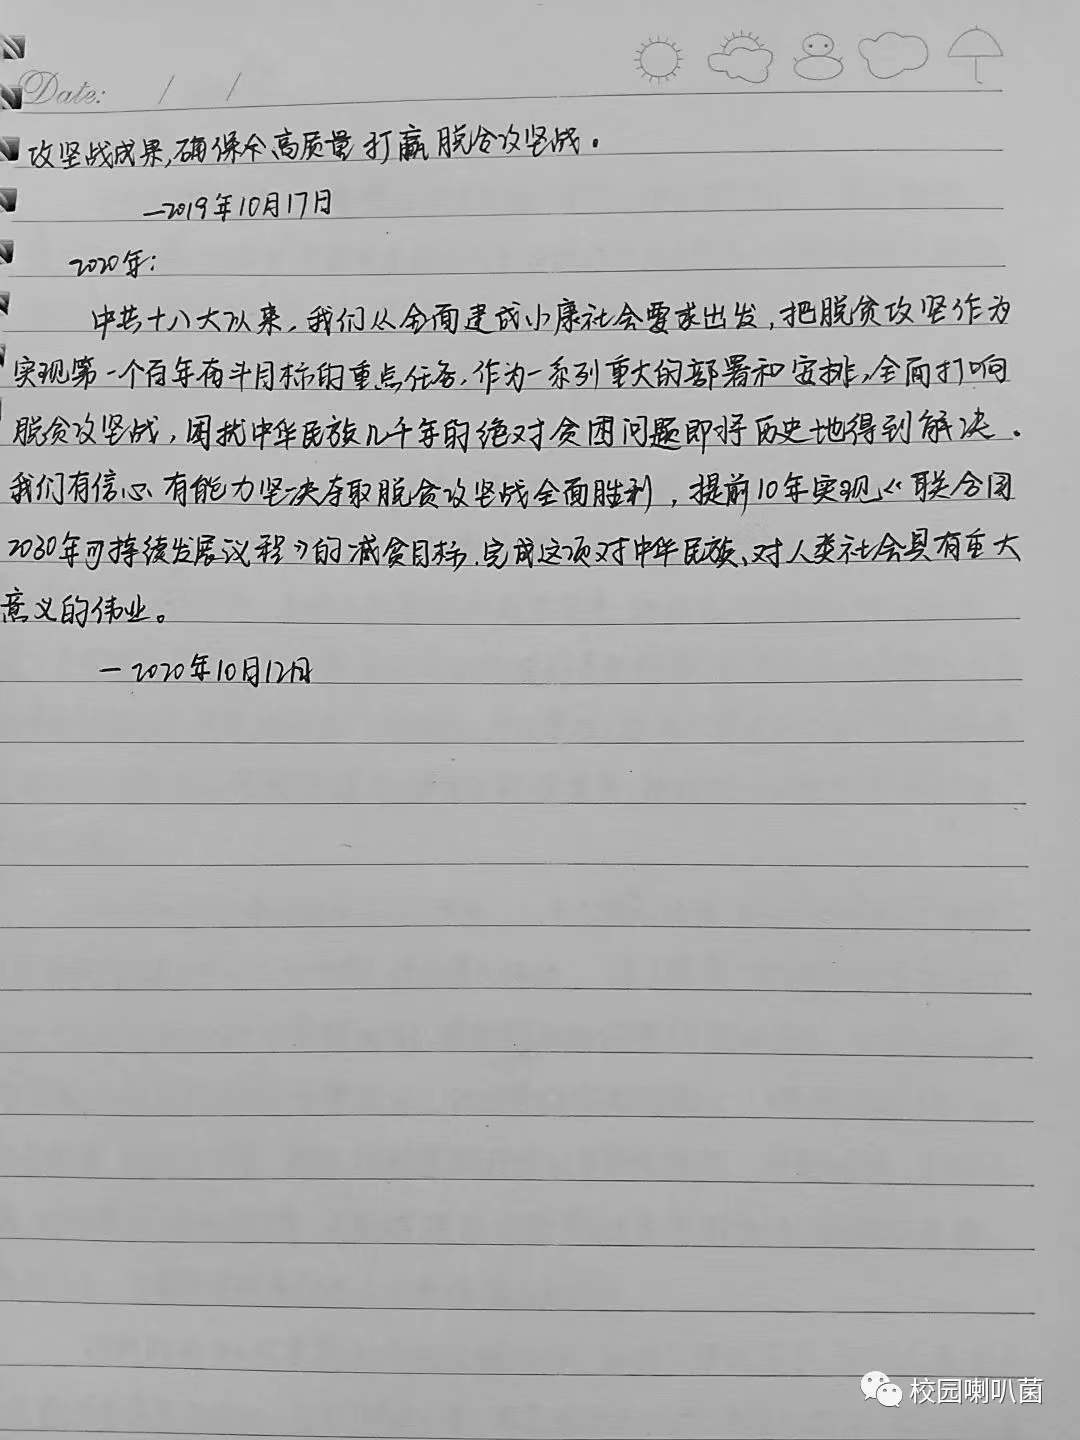 Date: / /
攻坚战成果,确保全高质量打赢脱贫攻坚战。
—2019年10月17日
2020年:
中共十八大以来,我们从全面建成小康社会要求出发,把脱贫攻坚作为
实现第一个百年奋斗目标的重点任务,作为一系列重大的部署和安排,全面打响
脱贫攻坚战,困扰中华民族几千年的绝对贫困问题即将历史地得到解决。
我们有信心、有能力坚决夺取脱贫攻坚战全面胜利,提前10年实现《联合国
2030年可持续发展议程》的减贫目标,完成这项对中华民族、对人类社会具有重大
意义的伟业。
—2020年10月12日
校园喇叭菌